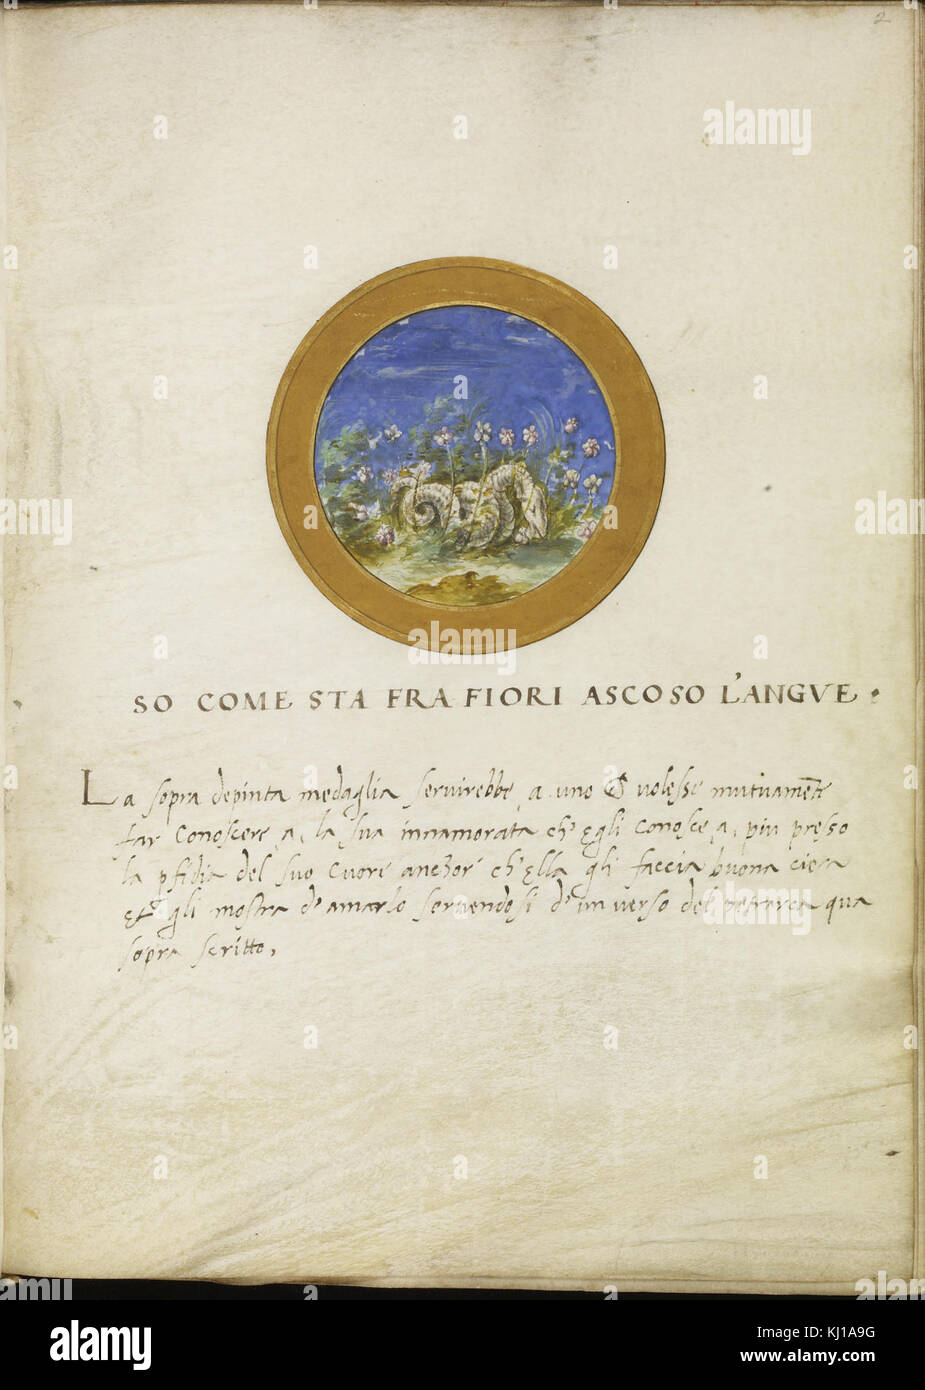 2
SO COME STA FRA FIORI ASCOSO L'ANGVE
La sopra depinta medaglia servirebbe, a uno volesse
far Conoscere, a, la sua innamorata ch' Egli Conosce, a, piu presso
la pfidia del suo Cuore anchor ch' Ella gli faccia buona ciera
Et gli mostra d' amarlo servendosi d' un verso del petrarca qua
sopra scritto,
alamy
alamy
alamy
alamy
alamy
alamy
alamy
KJ1A9G
www.alamy.com